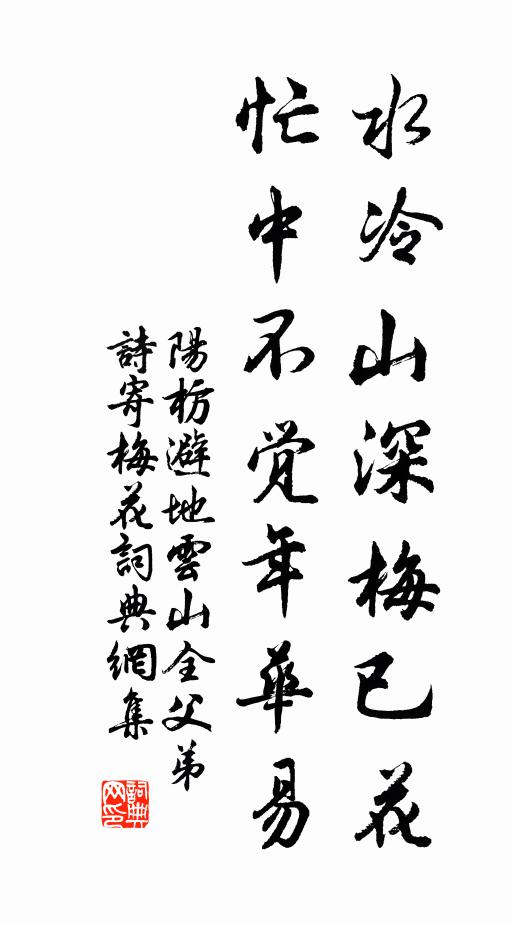 水冷山深梅已花
忙中不觉年華易
陽枋避地雲山全父弟
詩寄梅花詞典網集
詞典网印